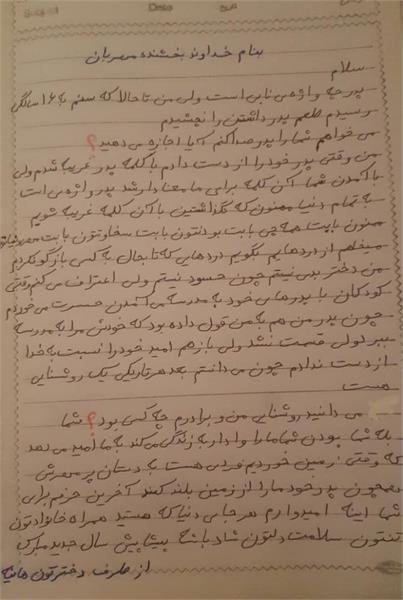 بنام خداوند بخشنده مهربان
سلام
پدر چه واژه ی نابی است ولی من تا حالا که سنم به ۱۶ سالگی
رسیدم طعم پدر داشتن را نچشیدم
می خواهم شما را پدر صدا کنم آیا اجازه می دهید؟
من وقتی پدر خود را از دست دادم با کلمه پدر غریبه شدم ولی
با آمدن شما آن کلمه برای ما معنا دار شد پدر واژه ی است
به تمام دنیا ممنون که نگذاشتین با آن کلمه غریبه شویم
ممنون بابت همه چی بابت بودنتون بابت سخاوتتون بابت
میخاهم از دردهایم بگویم دردهایی که تا بحال به کسی بازگو نکردم
من دختر بدی نیستم چون حسود نیستم ولی اعتراف می کنم وقتی
کودکان با پدرهای خود به مدرسه می آمدن حسرت می خوردم
چون پدر من هم به من قول داده بود که خودش مرا به مدرسه
ببرد ولی قسمت نشد ولی بازهم امید خود را نسبت به خدا
از دست ندادم چون می دانستم بعد هر تاریکی یک روشنایی
هست
می دانید روشنایی من و برادرم چه کسی بود؟ شما
بله شما بودن شما ما را وادار به زندگی می کند به ما امید می دهد
که وقتی زمین خوردیم فردی هست با دستان پر مهرش
همچون پدر خود ما را از زمین بلند کند آخرین حرفم برای
شما اینه امیدوارم هر جای دنیا که هستید همراه خانوادتون
تنتون سلامت دلتون شاد باشه پیشاپیش سال جدید مبارک
از طرف دخترتون هانیه